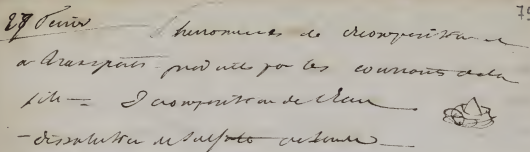 27 février Phénomènes de décomposition et
de transports produits par les courants de la
pile — Décomposition de l'eau
— dissolution de sulfate de soude —